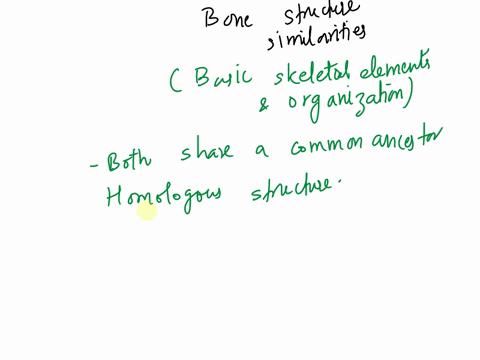 Bone structure
similarities
(Basic skeletal elements
& organization)
- Both share a common ancestor
Homologous structure.